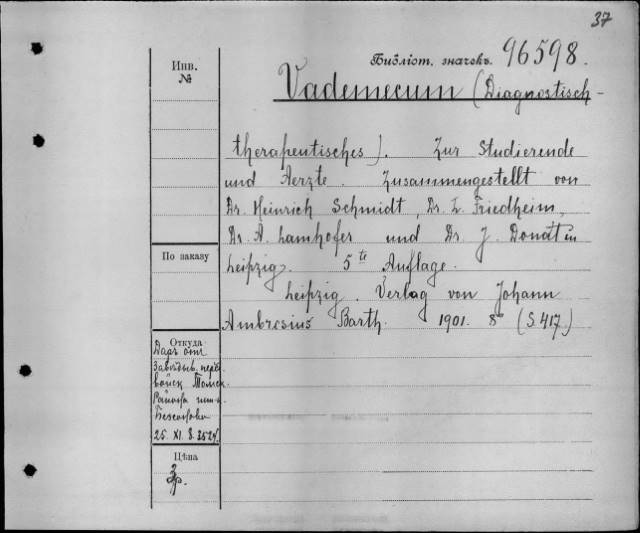 37
Инв.
№
Библіот. значекъ. 96598.
Vademecum (Diagnostisch-
therapeutisches). Zur Studierende
und Aerzte. Zusammengestellt von
Dr. Heinrich Schmidt, Dr. L. Friedheim,
Dr. A. Lamhofer und Dr. J. Donat in
По заказу
Leipzig. 5te Auflage.
Leipzig. Verlag von Johann
Ambrosius Barth. 1901. 8° (S. 417.)
Откуда
Даръ отъ
Завѣдыв. перев
войск Томск.
Района
25. XI. 8.
Цѣна
3р.